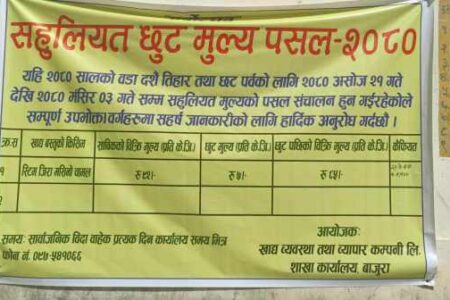 सहुलियत छुट मुल्य पसल-२०८०
यहि २०८० सालको वडा दशै तिहार तथा छट पर्वको लागि २०८० असोज २१ गते
देखि २०८० मंसिर ०३ गते सम्म सहुलियत मुल्यको पसल संचालन हुन गईरहेकोले
सम्पूर्ण उपभोक्ता वर्गहरुमा सहर्ष जानकारीको लागि हार्दिक अनुरोध गर्दछौ ।
क्र.स खाद्य वस्तुको किसिम साविकको विक्रि मुल्य (प्रति के.जि.) छुट मुल्य (प्रति के.जि.) छुट पछिको विक्रि मुल्य (प्रति के.जि.) कैफियत
१ स्टिम जिरा मसिनो चामल रु ९२।- रु ७।- रु ८५।-
२
समयः सार्वजनिक विदा वाहेक प्रत्यक दिन कार्यालय समय भित्र
फोन नं. ०९७-५४१०६६
आयोजकः
खाद्य व्यवस्था तथा व्यापार कम्पनी लि.
शाखा कार्यालय, बाजुरा